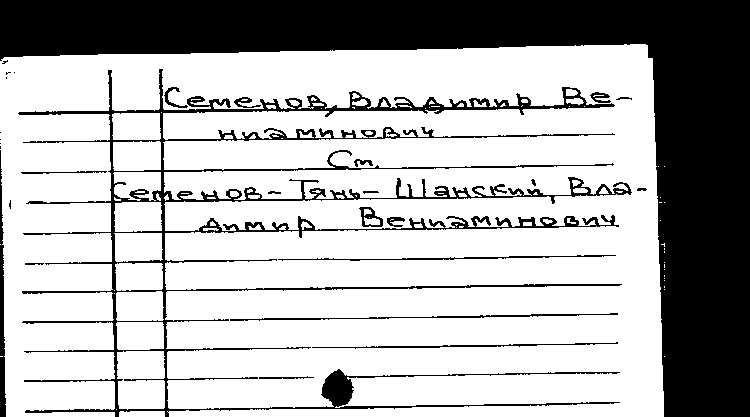 Семенов, Владимир Ве-
ниаминович
См.
Семенов-Тянь-Шанский, Вла-
димир Вениаминович